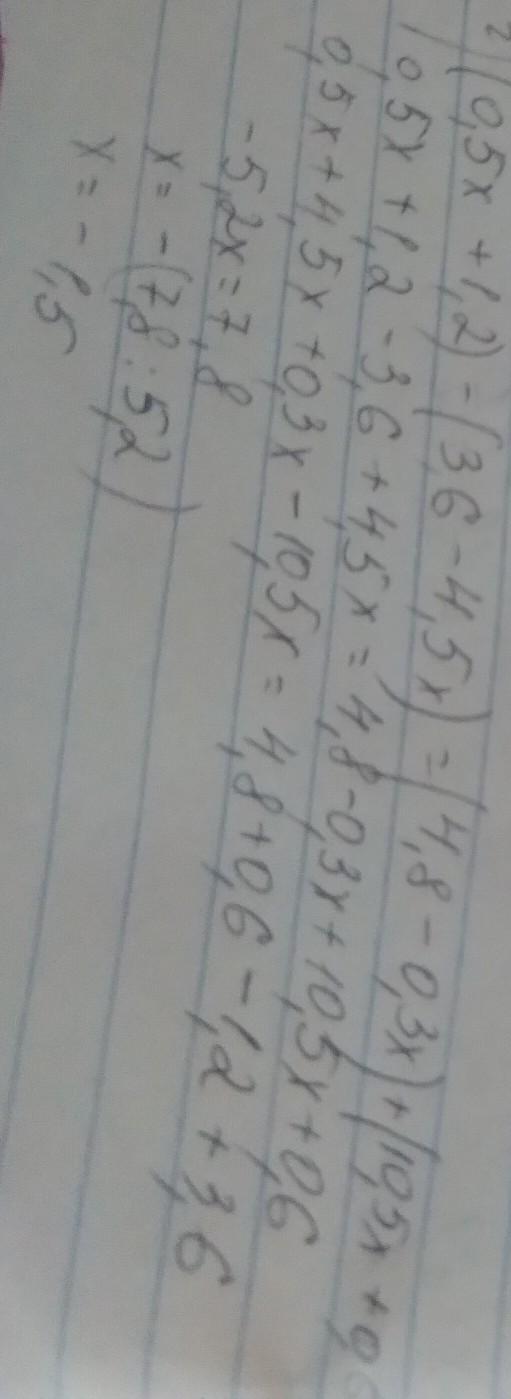 (0,5x + 1,2) - (3,6 - 4,5x) = (4,8 - 0,3x) + (10,5x + 0,
0,5x + 1,2 - 3,6 + 4,5x = 4,8 - 0,3x + 10,5x + 0,6
0,5x + 4,5x + 0,3x - 10,5x = 4,8 + 0,6 - 1,2 + 3,6
-5,2x = 7,8
x = -(7,8 : 5,2)
x = -1,5